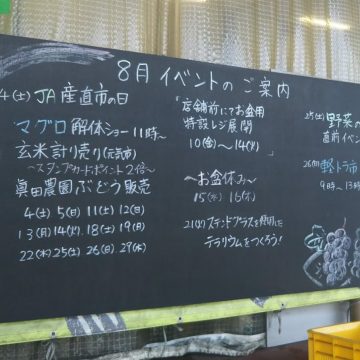 8月 イベントのご案内
4(土) JA産直市の日
マグロ解体ショー 11時〜
玄米計り売り(元気市)
〜スタンプカードポイント2倍〜
眞田農園ぶどう販売
4(土) 5(日) 11(土) 12(日)
13(月) 14(火) 18(土) 19(日)
22(水) 25(土) 26(日) 29(水)
店舗前にてお盆用
特設レジ展開
10(金)〜14(火)
〜お盆休み〜
15(水) 16(木)
21(火) ステンドグラスを使用した
テラリウムをつくろう!
25(土) 野菜の
直前イベン
26(日) 軽トラ市
9時〜13時